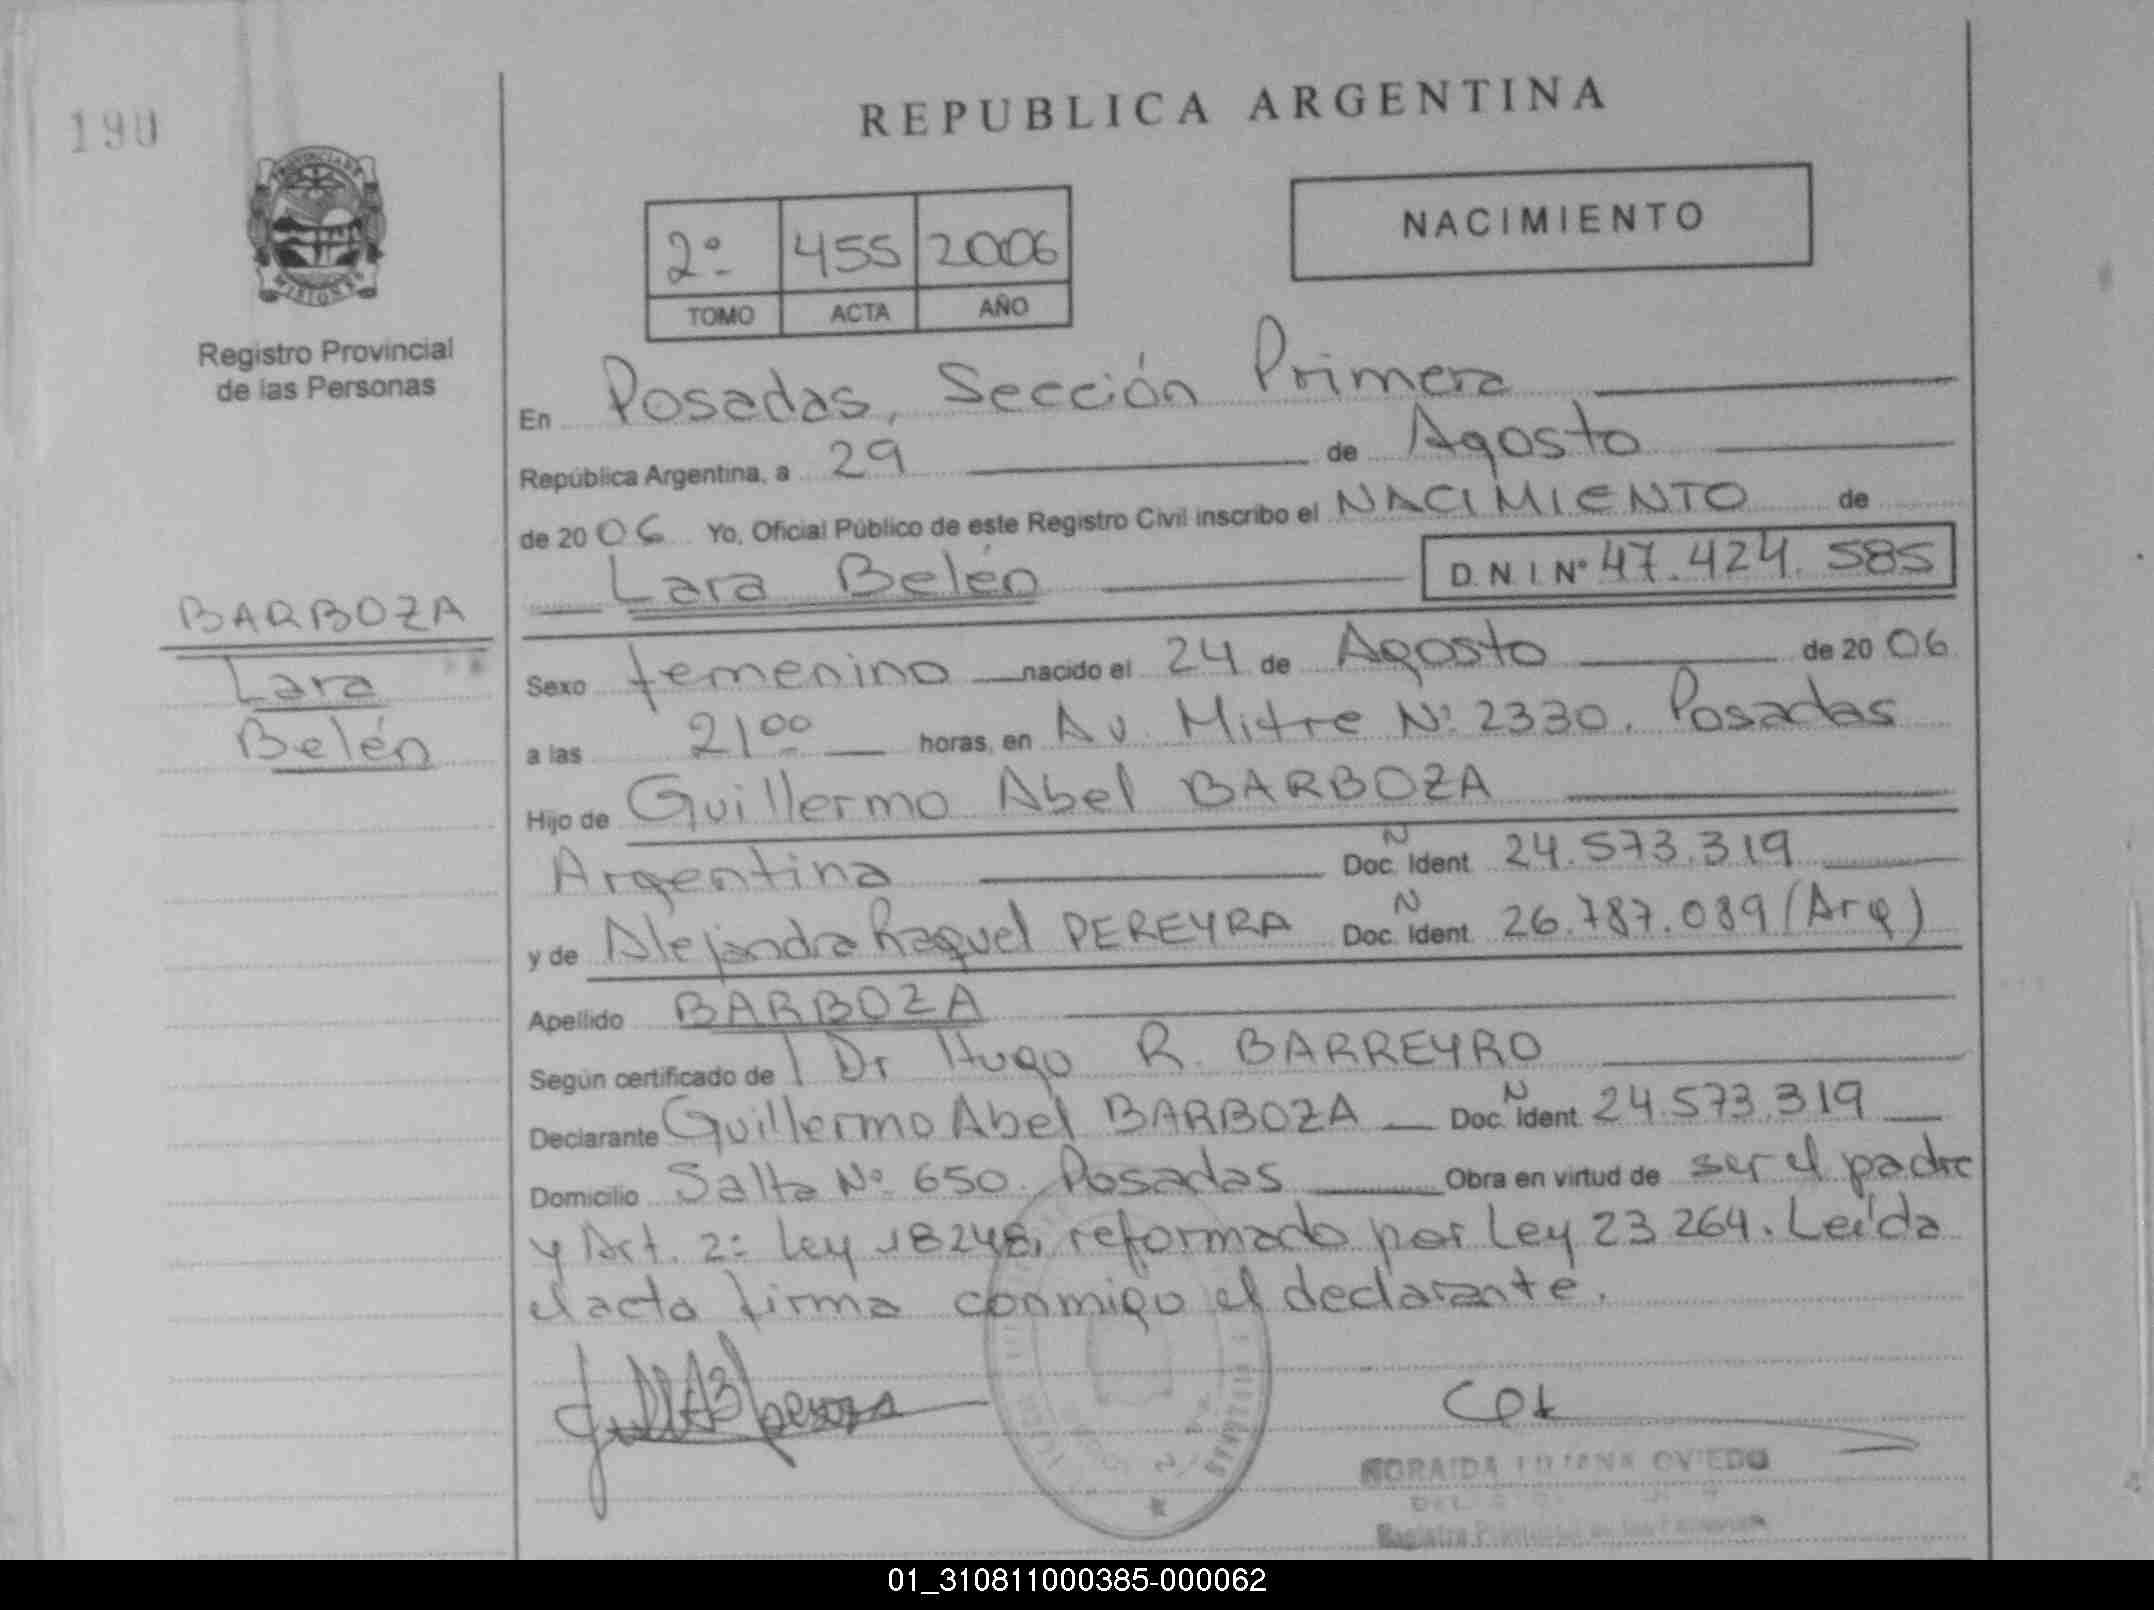 190
REPUBLICA ARGENTINA
PROVINCIA DE
MISIONES
Registro Provincial
de las Personas
2º 455 2006
TOMO ACTA AÑO
NACIMIENTO
En Posadas, Sección Primera
República Argentina, a 29 de Agosto
de 2006 Yo, Oficial Público de este Registro Civil inscribo el NACIMIENTO de
Lara Belén D.N.I Nº 47.424.585
BARBOZA
Lara
Belén
Sexo femenino nacido el 24 de Agosto de 2006
a las 21 00 horas, en Av. Mitre Nº 2330. Posadas
Hijo de Guillermo Abel BARBOZA
Argentina Doc. N Ident 24.573.319
y de Alejandra Raquel PEREYRA Doc. N Ident 26.787.089 (Arg)
Apellido BARBOZA
Según certificado de Dr Hugo R. BARREYRO
Declarante Guillermo Abel BARBOZA Doc. N Ident 24.573.319
Domicilio Salta Nº 650. Posadas Obra en virtud de ser el padre
y Art. 2: Ley 18248, reformado por Ley 23264. Leída
el acta firma conmigo el declarante.
OVIEDO
Registro
01_310811000385-000062